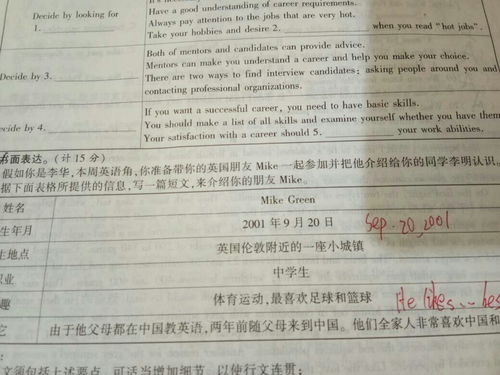 Decide by looking for
1.
Have a good understanding of career requirements.
Always pay attention to the jobs that are very hot.
Take your hobbies and desire 2. when you read "hot jobs".
Decide by 3.
Both of mentors and candidates can provide advice.
Mentors can make you understand a career and help you make your choice.
There are two ways to find interview candidates: asking people around you and
contacting professional organizations.
ecide by 4.
If you want a successful career, you need to have basic skills.
You should make a list of all skills and examine yourself whether you have them
Your satisfaction with a career should 5. your work abilities.
书面表达。(计 15 分)
假如你是李华,本周英语角,你准备带你的英国朋友 Mike 一起参加并把他介绍给你的同学李明认识。
据下面表格所提供的信息,写一篇短文,来介绍你的朋友 Mike。
姓名 Mike Green
生年月 2001 年 9 月 20 日 Sep. 20, 2001
生地点 英国伦敦附近的一座小城镇
职业 中学生
趣 体育运动,最喜欢足球和篮球 He likes...bes
它 由于他父母都在中国教英语,两年前随父母来到中国。他们全家人非常喜欢中国和
文须包括上述要点,可适当增加细节,以使行文连贯;